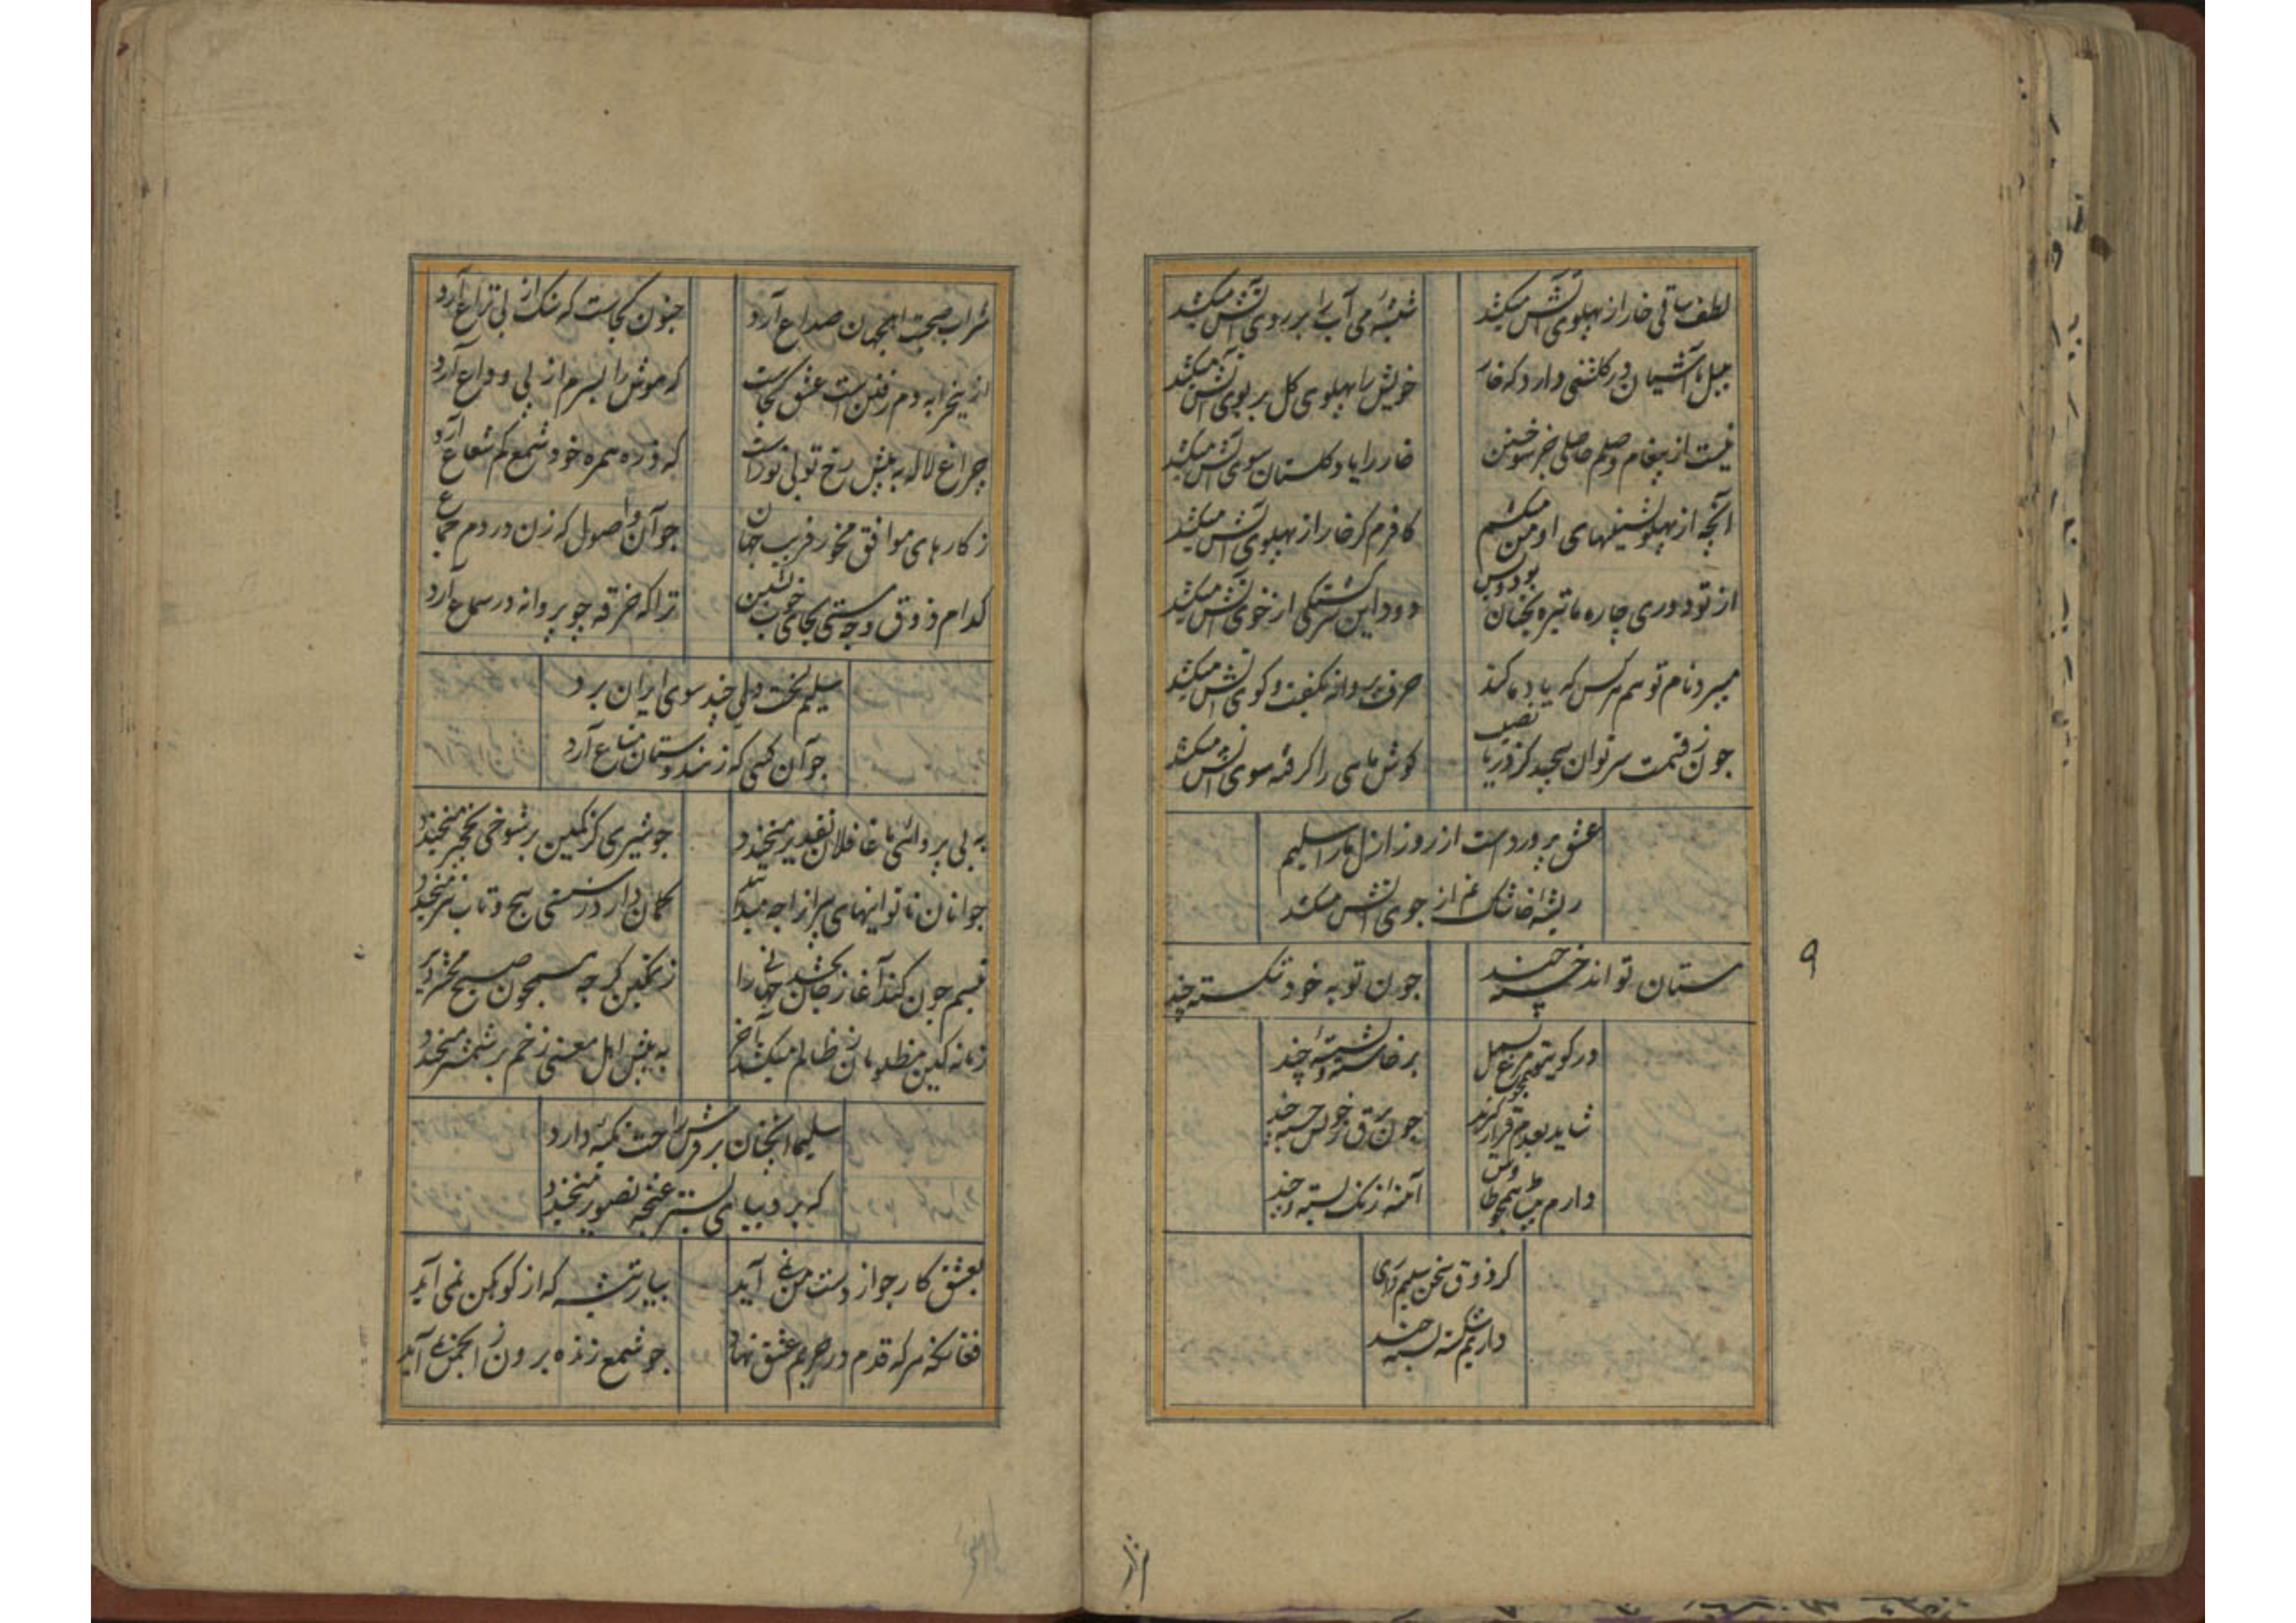 لطف ساقی خار از پهلوی آتش میکشد
شیشهٔ می آب را بر روی آتش میکشد
بلبل ما آشیان در گلشنی دارد که خار
خویش را پهلوی گل بر بوی آتش میکشد
نیست از پیغام وصلم حاصلی جز سوختن
خار را یاد گلستان سوی آتش میکشد
آنچه از پهلونشینهای او من میکشم
کافرم گر خار از پهلوی آتش میکشد
از تو دوری چاره ما تیره بختان بود و بس
دود این سرگشتگی از خوی آتش میکشد
میبرد نام تو هم هرکس که یاد ما کند
حرف پروانه بگفت و کوی آتش میکشد
چون ز قسمت سر توان پیچید کز دریا نصیب
گوش ماهی را گرفته سوی آتش میکشد
عشق پرورد است از روز ازل ما را سلیم
ریشه خاشاک غم از جوی آتش میکشد
مستان تواند خسته چند
چون توبه خود شکسته چند
در کویتو همچو مرغ بسمل
برخاسته و نشسته چند
شاید بعدم قرار گیرند
چون برق ز خویش جسته چند
دارم همچو طاوس
آمنه از رنگ بسته چند
کر ذوق سخن سلیم داری
داریم شکسته بسته چند
شراب صحبت اهل جهان صداع آرد
جنون کجاست که سنک از پی نزاع آرد
ازین خرابه دم رفتن است عشق کجاست
که هوش را بسرم از پی وداع آرد
چراغ لاله به پیش رخ تو بی نور است
که ذره همره خود شمع کم شعاع آرد
ز کارهای موافق مخور فریب جهان
چو آن اصول که زن در دم جماع آرد
کدام ذوق و چه مستی بجای خویشتن
ترا که خرقه چو پروانه در سماع آرد
سلیم بخت دلی چند سوی ایران برد
چو آن کسی که ز هندوستان متاع آرد
به بی پروائی ما غافلان تقدیر میخندد
چو شیری کز کمین بر شوخی نخجیر میخندد
جوانان ناتوانیهای پیران را چه میدانند
کمان دارد ز سستی پیچ و تاب تیر میخندد
تبسم چون کند آغاز جان بخشد جهانی را
ز تمکین گر چه همچون صبح محشر دیر
زمانه کین مظلومان ز ظالم میکشد آخر
به پیش اهل معنی زخم بر شمشیر میخندد
سلیما آنچنان بر فرش راحت تکیه دارد
که بر دیبای بستر غنچه تصویر میخندد
بعشق کار چو از دست من نمی آید
بیار تیشه که از کوهکن نمی آید
فغانکه هر که قدم در حریم عشق نهاد
چو شمع زنده برون ز انجمن نمی آید